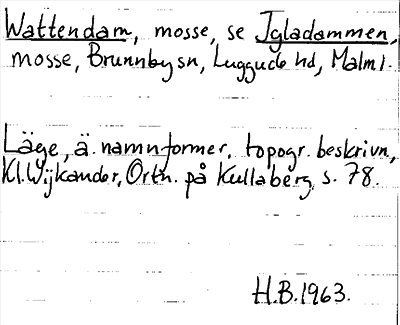 Wattendam, mosse, se Igladammen,
mosse, Brunnby sn, Luggude hd, Malm l.
Läge, ä. namnformer, topogr. beskrivn,
Kl. Wijkander, Ortn. på Kullaberg, s. 78.
H.B. 1963.